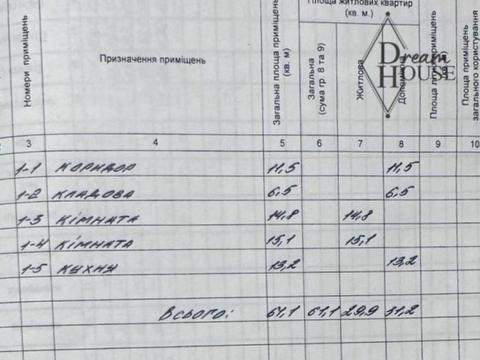 Площа житлових квартир
(кв. м.)
Номери приміщень
Призначення приміщень
Загальна площа приміщень
(кв. м)
Загальна
(сума гр. 8 та 9)
Житлова
Площа приміщень
загального користування
Dream
HOUSE
3 4 5 6 7 8 9 10
1-1 КОРИДОР 11,5 11,5
1-2 КЛАДОВА 6,5 6,5
1-3 КІМНАТА 14,8 14,8
1-4 КІМНАТА 15,1 15,1
1-5 КУХНЯ 13,2 13,2
Всього: 61,1 61,1 29,9 31,2